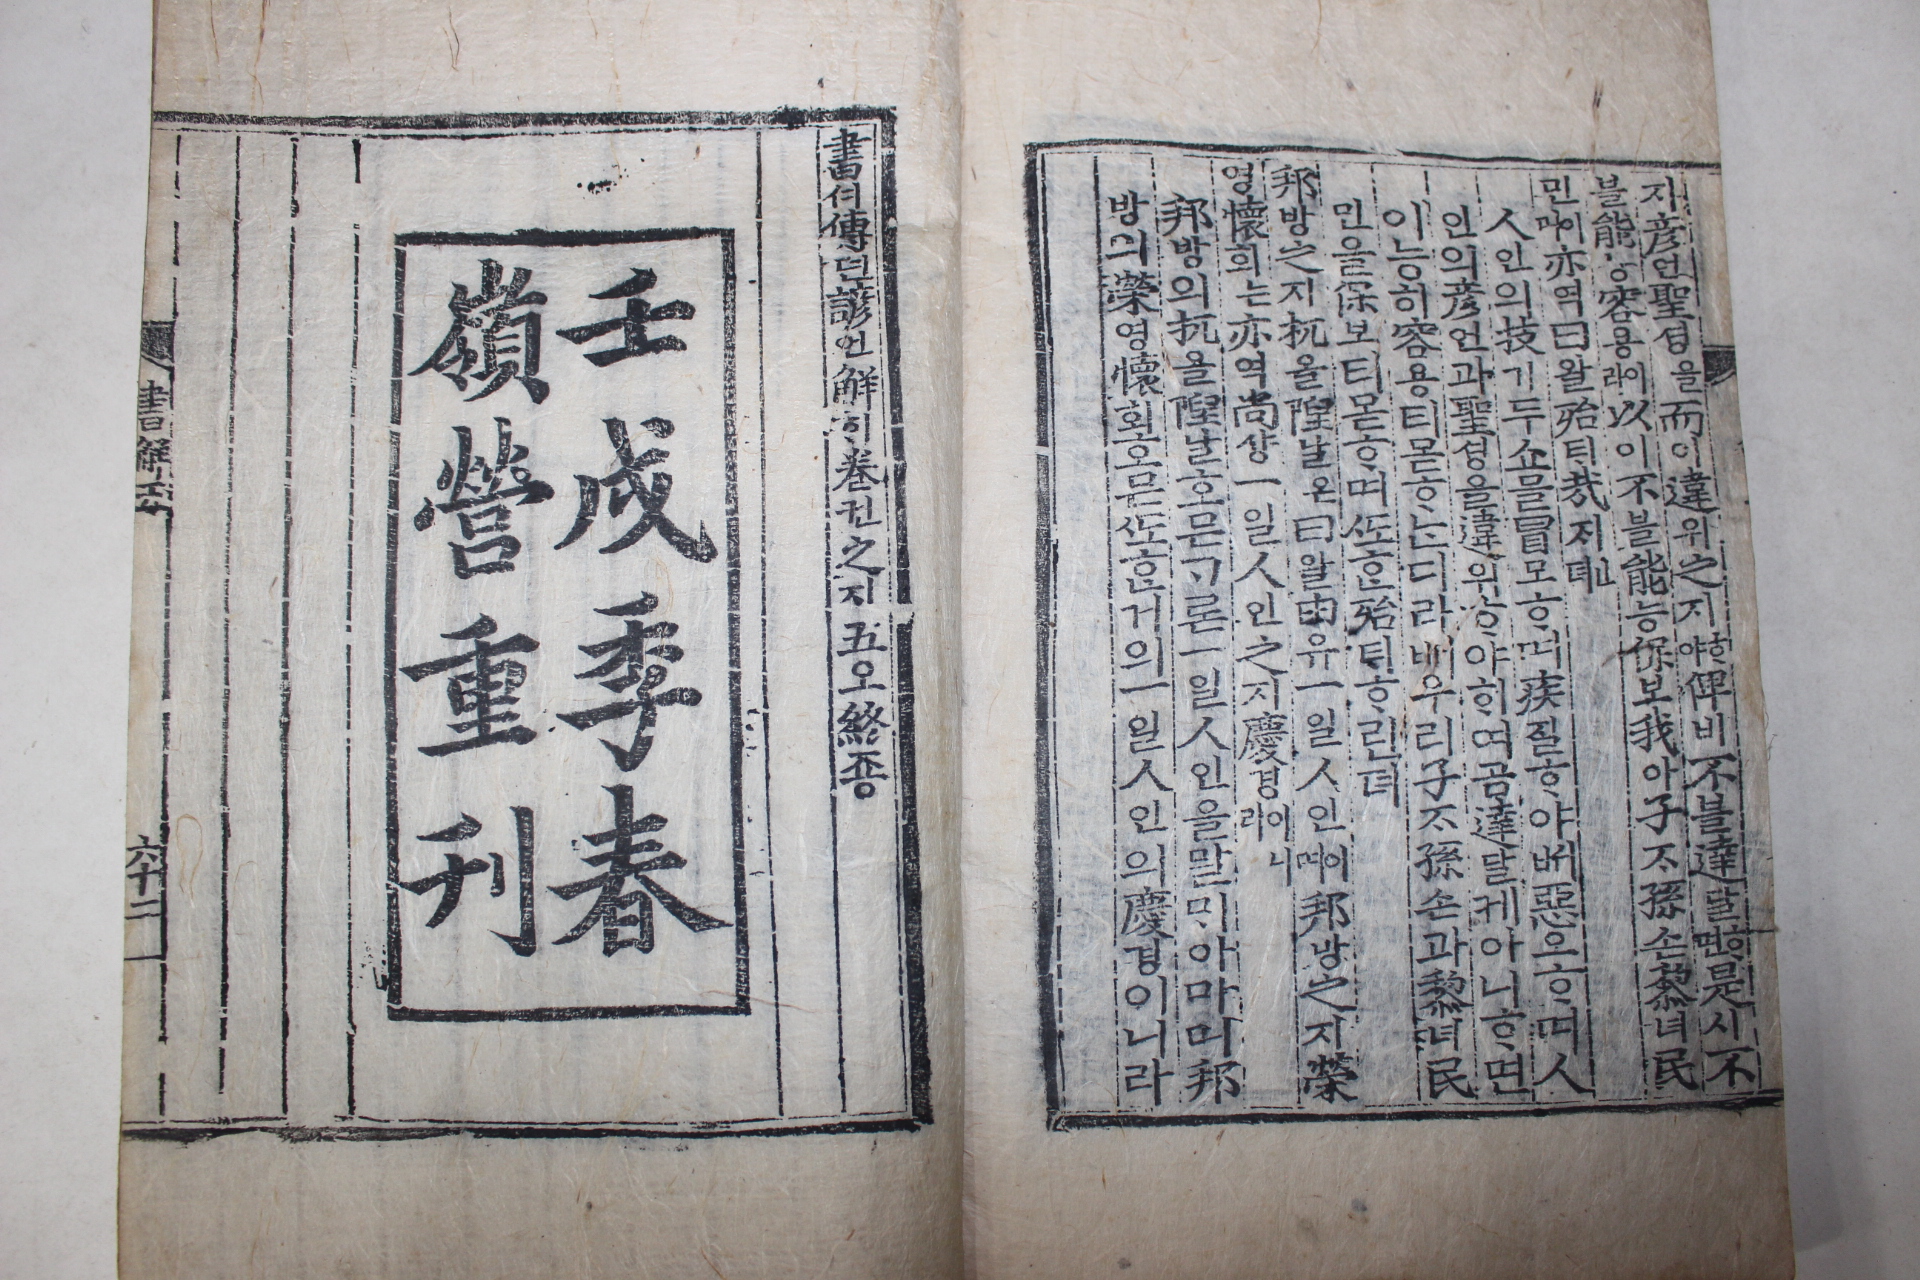 지彦언聖셩을而이違위之지ᄒᆞ야俾비不블達달ᄒᆞ면是시不
블能능容용이라以이不블能능保보我아子ᄌᆞ孫손黎녀民
민이며亦역曰왈殆ᄐᆡ哉ᄌᆡᆫ뎌
人인의技기두쇼ᄆᆞᆯ冒모ᄒᆞ며疾질ᄒᆞ야ᄡᅥ惡오ᄒᆞ며人
인의彦언과聖셩을違위ᄒᆞ야ᄒᆞ여곰達달케아니ᄒᆞ면
이능히容용티몯ᄒᆞᄂᆞᆫ디라ᄡᅥ우리子ᄌᆞ孫손과黎녀民
민을保보티몯ᄒᆞ며ᄯᅩᄒᆞᆫ殆ᄐᆡᄒᆞ린뎌
邦방之지杌올隉날은曰왈由유一일人인이며邦방之지榮
영懷회는亦역尙샹一일人인之지慶경이니라
邦방의杌올隉날호믄ᄀᆞ론一일人인을말ᄆᆡ아마미며邦
방의榮영懷회호믄ᄯᅩᄒᆞᆫ거의一일人인의慶경이니라
書셔傳뎐諺언解ᄒᆡ卷권之지五오終죵
壬戌季春
嶺營重刊
書解五
六十二